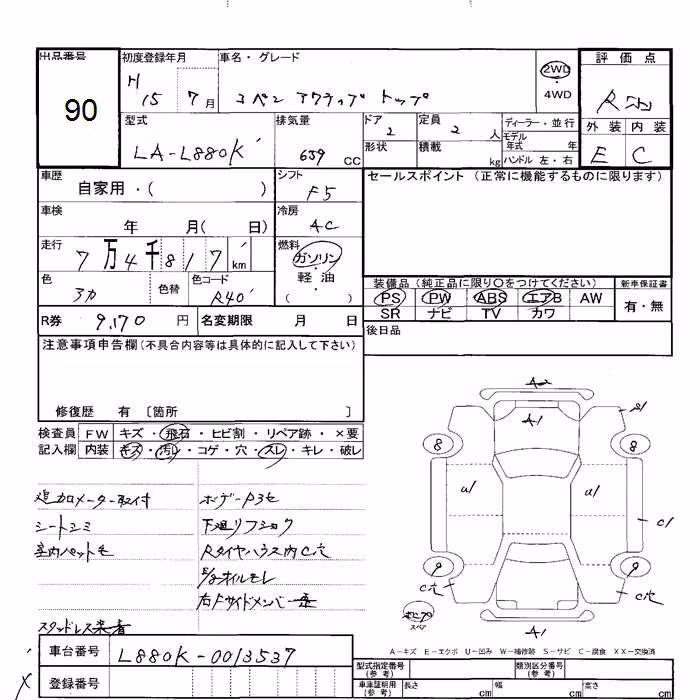 出品番号 90
初度登録年月 H 15 7月
車名・グレード コペン アクティブ トップ
2WD ・ 4WD
評価点 R
外装 内装
E C
型式 LA-L880K
排気量 659 CC
ドア 2
形状
定員 2 人
積載 kg
ディーラー・並行
モデル年式 年
ハンドル 左・右
車歴 自家用・( )
シフト F5
セールスポイント (正常に機能するものに限ります)
車検 年 月( 日)
冷房 AC
走行 7万4千817km
燃料 ガソリン・軽・油 ( )
色 アカ
色替
色コード R40
装備品 (純正品に限り○をつけてください)
PS PW ABS エアB AW
SR ナビ TV カワ
新車保証書 有・無
R券 9,170 円
名変期限 月 日
後日品
注意事項申告欄 (不具合内容等は具体的に記入して下さい)
修復歴 有 〔箇所 〕
検査員記入欄
FW キズ・飛石・ヒビ割・リペア跡・×要
内装 キズ・汚レ・コゲ・穴・スレ・キレ・破レ
追加メーター取付
シートシミ
室内ペット毛
スタッドレス装着
ボデーP3セ
下廻リフショク
RタイヤハウスC穴
右Fサイドメンバー
A2
A1
8 8
U1 U1
C1
9 9
C穴 C穴
スペア
A1
A-キズ E-エクボ U-凹み W-補修跡 S-サビ C-腐食 XX-交換済
車台番号 L880K-0013537
登録番号
型式指定番号 (参考)
類別区分番号 (参考)
車庫証明用 (参考) 長さ cm 幅 cm 高さ cm